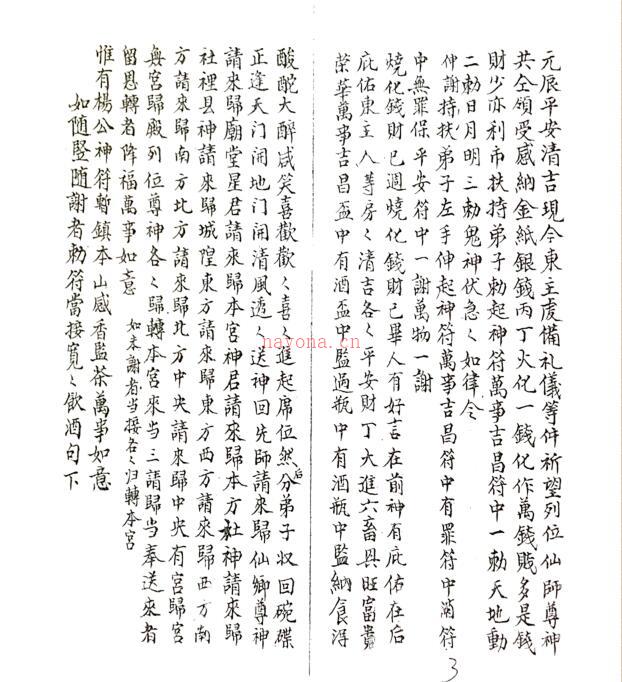 元辰平安清吉現今東主虔備礼儀等件祈望列位仙師尊神
共仝領受感納金紙銀錢丙丁火化一錢化作萬錢贱多是錢
財少亦利市扶持弟子勅起神符萬事吉昌符中一勅天地動
二勅日月明三勅鬼神伏急〻如律令
伸謝持扶弟子左手伸起神符萬事吉昌符中有罪符中消符
中無罪保平安符中一謝萬物一謝
燒化錢財已週燒化錢財已畢人有好言在前神有庇佑在后
庇佑東主人等房〻清吉各〻平安財丁大進六畜興旺富貴
荣華萬事吉昌盃中有酒盃中監過瓶中有酒瓶中監納食淂
酸酡大醉咸笑喜歡歡〻喜〻進起席位然后分弟子収回碗碟
正逢天门開地门開清風透〻送神回先師請來歸仙鄉尊神
請來歸廟堂星君請來歸本宮神君請來歸本方社神請來歸
社裡县神請來歸城隍東方請來歸東方西方請來歸西方南
方請來歸南方北方請來歸北方中央請來歸中央有宮歸宮
無宮歸殿列位尊神各〻歸轉本宮來当三請歸当奉送來者
留恩轉者降福萬事如意
如未謝者当接各〻归轉本宮
惟有楊公神符暫鎮本山感香監茶萬事如意
如随竪随謝者勅符當接寬〻飲酒句下
nayona.cn
3